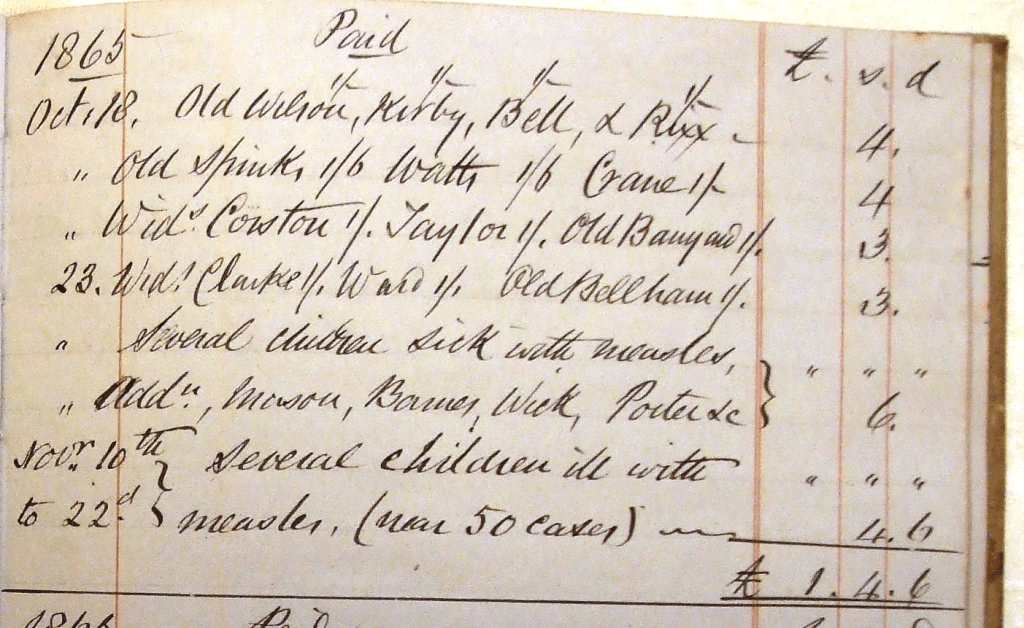 1865 Paid £. s. d
1/- 1/- 1/- 1/-
Oct. 18. Old Wilson, Kirby, Bell, & Rixx - 4.
" Old Spinks 1/6 Watts 1/6 Crane 1/- 4
" Wids. Corston 1/. Taylor 1/. Old Banyard 1/. 3.
23. Wids. Clarke 1/. Ward 1/. Old Bellham 1/. 3.
" Several children sick with measles, " " "
" Addn., Mason, Barnes, Wick, Porter &c 6.
Novr. 10th Several children ill with " " "
to 22d. measles. (near 50 cases) 4. 6
£ 1. 4. 6
1866 Paid